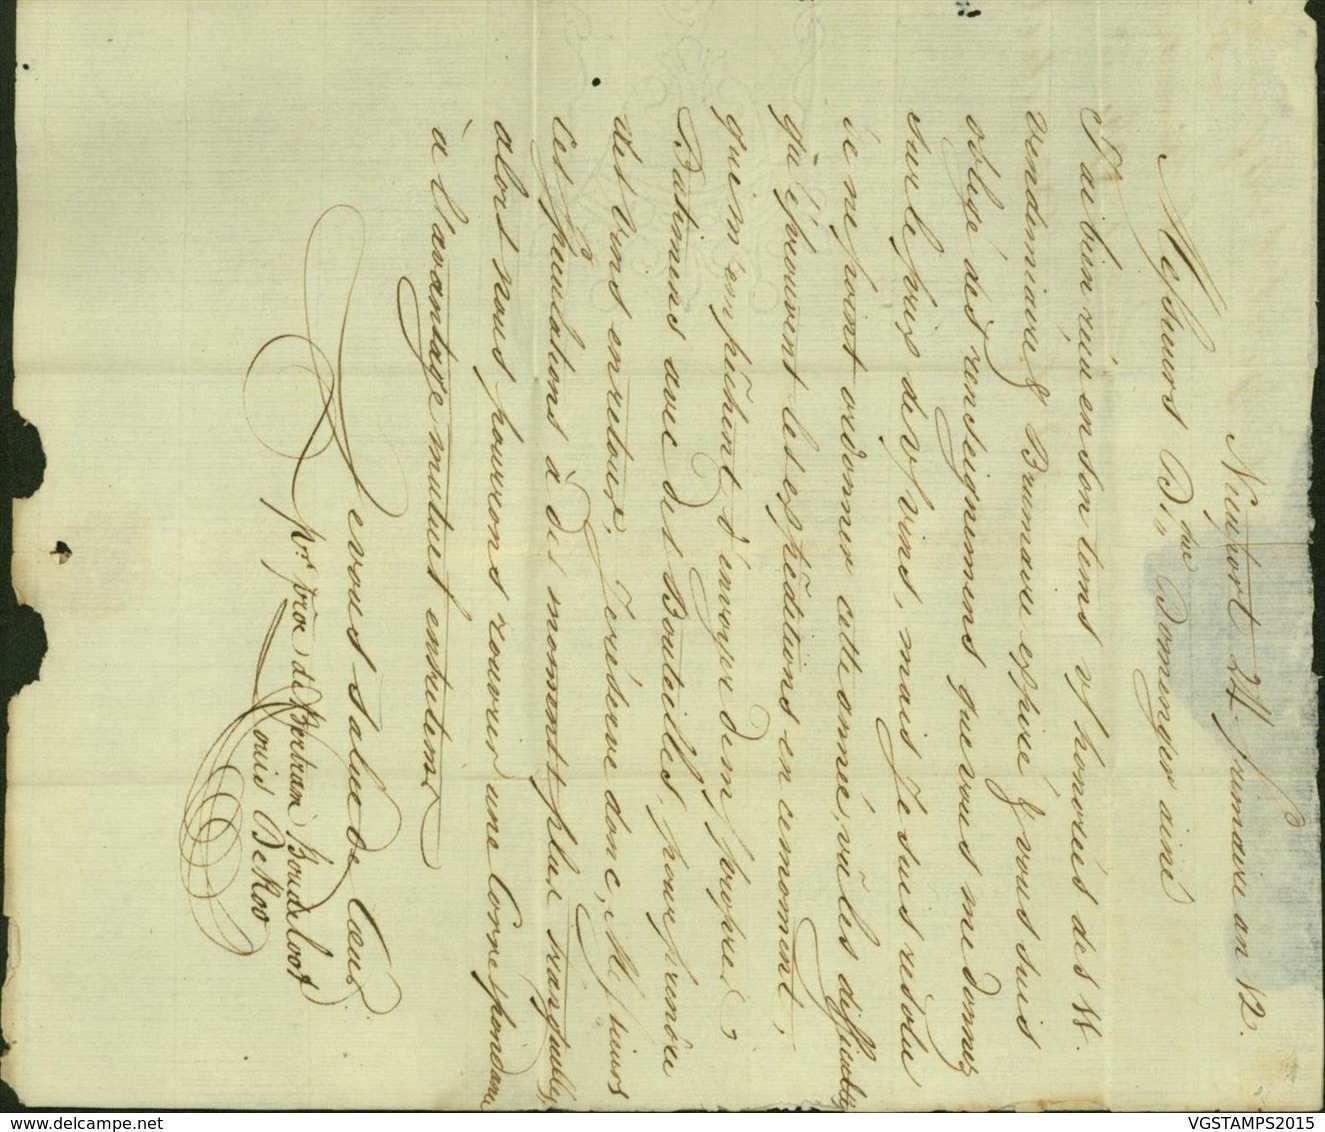 Nieuport 24 frimaire an 12.
Messieurs D.que Domenger ainé
J'ai bien réçu en son tems v/ honorées des 18.
vendemiaire & Brumaire expiré & vous suis
obligé des renseignemens que vous me donnez
sur le prix de v/ vins, mais je suis résolu
de ne point ordonner cette année, vû les difficultés
qu'éprouvent les expéditions en ce moment,
qui m'empêchent d'envoyer de m/ propres
Batimens avec des Bouteilles, pour prendre
des vins en retour; Je réserve donc, Messieurs
ces speculations à des moments plus tranquilles,
alors nous pourrons rouvrir une Correspondance
à l'avantage mutuel entretenu
Je vous salue de Coeur
p.r proc de Bertram Boudeloot
Louis De Roo
VGSTAMPS2015